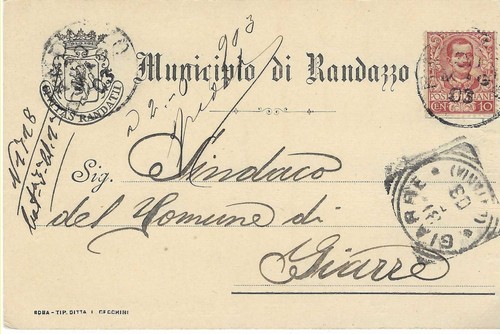 CIVITAS RANDATII
Municipio di Randazzo
903
POSTE ITALIANE
CEN 10
03
N 1718
Sig. Sindaco
del Comune di
Giarre
GIARRE
03
ROMA - TIP. DITTA L. CECCHINI